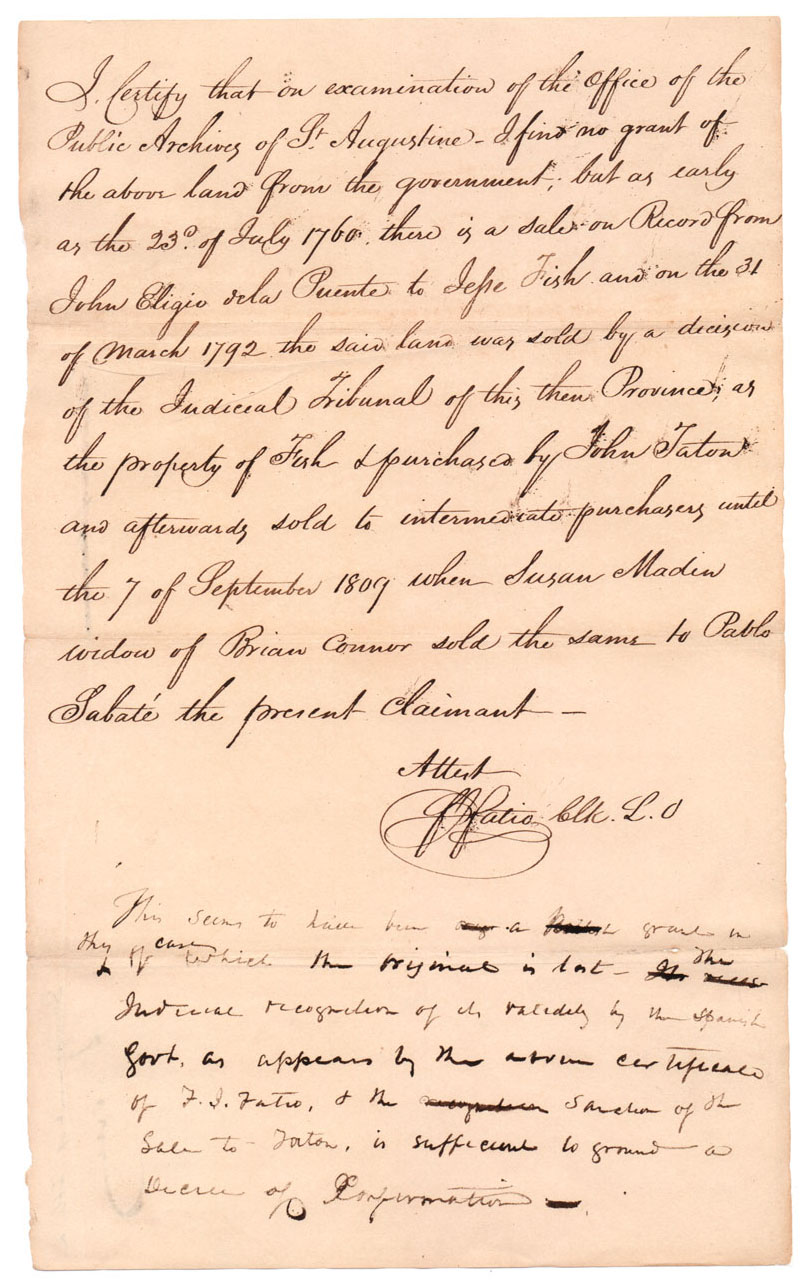 I Certify that on examination of the Office of the
Public Archives of St. Augustine - I find no grant of
the above land from the government; but as early
as the 23d. of July 1760. there is a sale on Record from
John Eligio de la Puente to Jesse Fish and on the 31
of March 1792 the said land was sold by a decision
of the Judicial Tribunal of this then Province; as
the property of Fish & purchased by John Taton
and afterwards sold to intermediate purchasers until
the 7 of September 1809 when Susan Madin
widow of Brian Connor sold the same to Pablo
Sabaté the present Claimant —
Attest
F J Fatio Clk. L. O
This seems to have been a grant in
this case
of which the original is lost - The
Judicial recognition of its validity by the Spanish
Govt. as appears by the above certificate
of F. J. Fatio, & the Sanction of the
Sale to Taton, is sufficient to ground a
Decree of Confirmation —